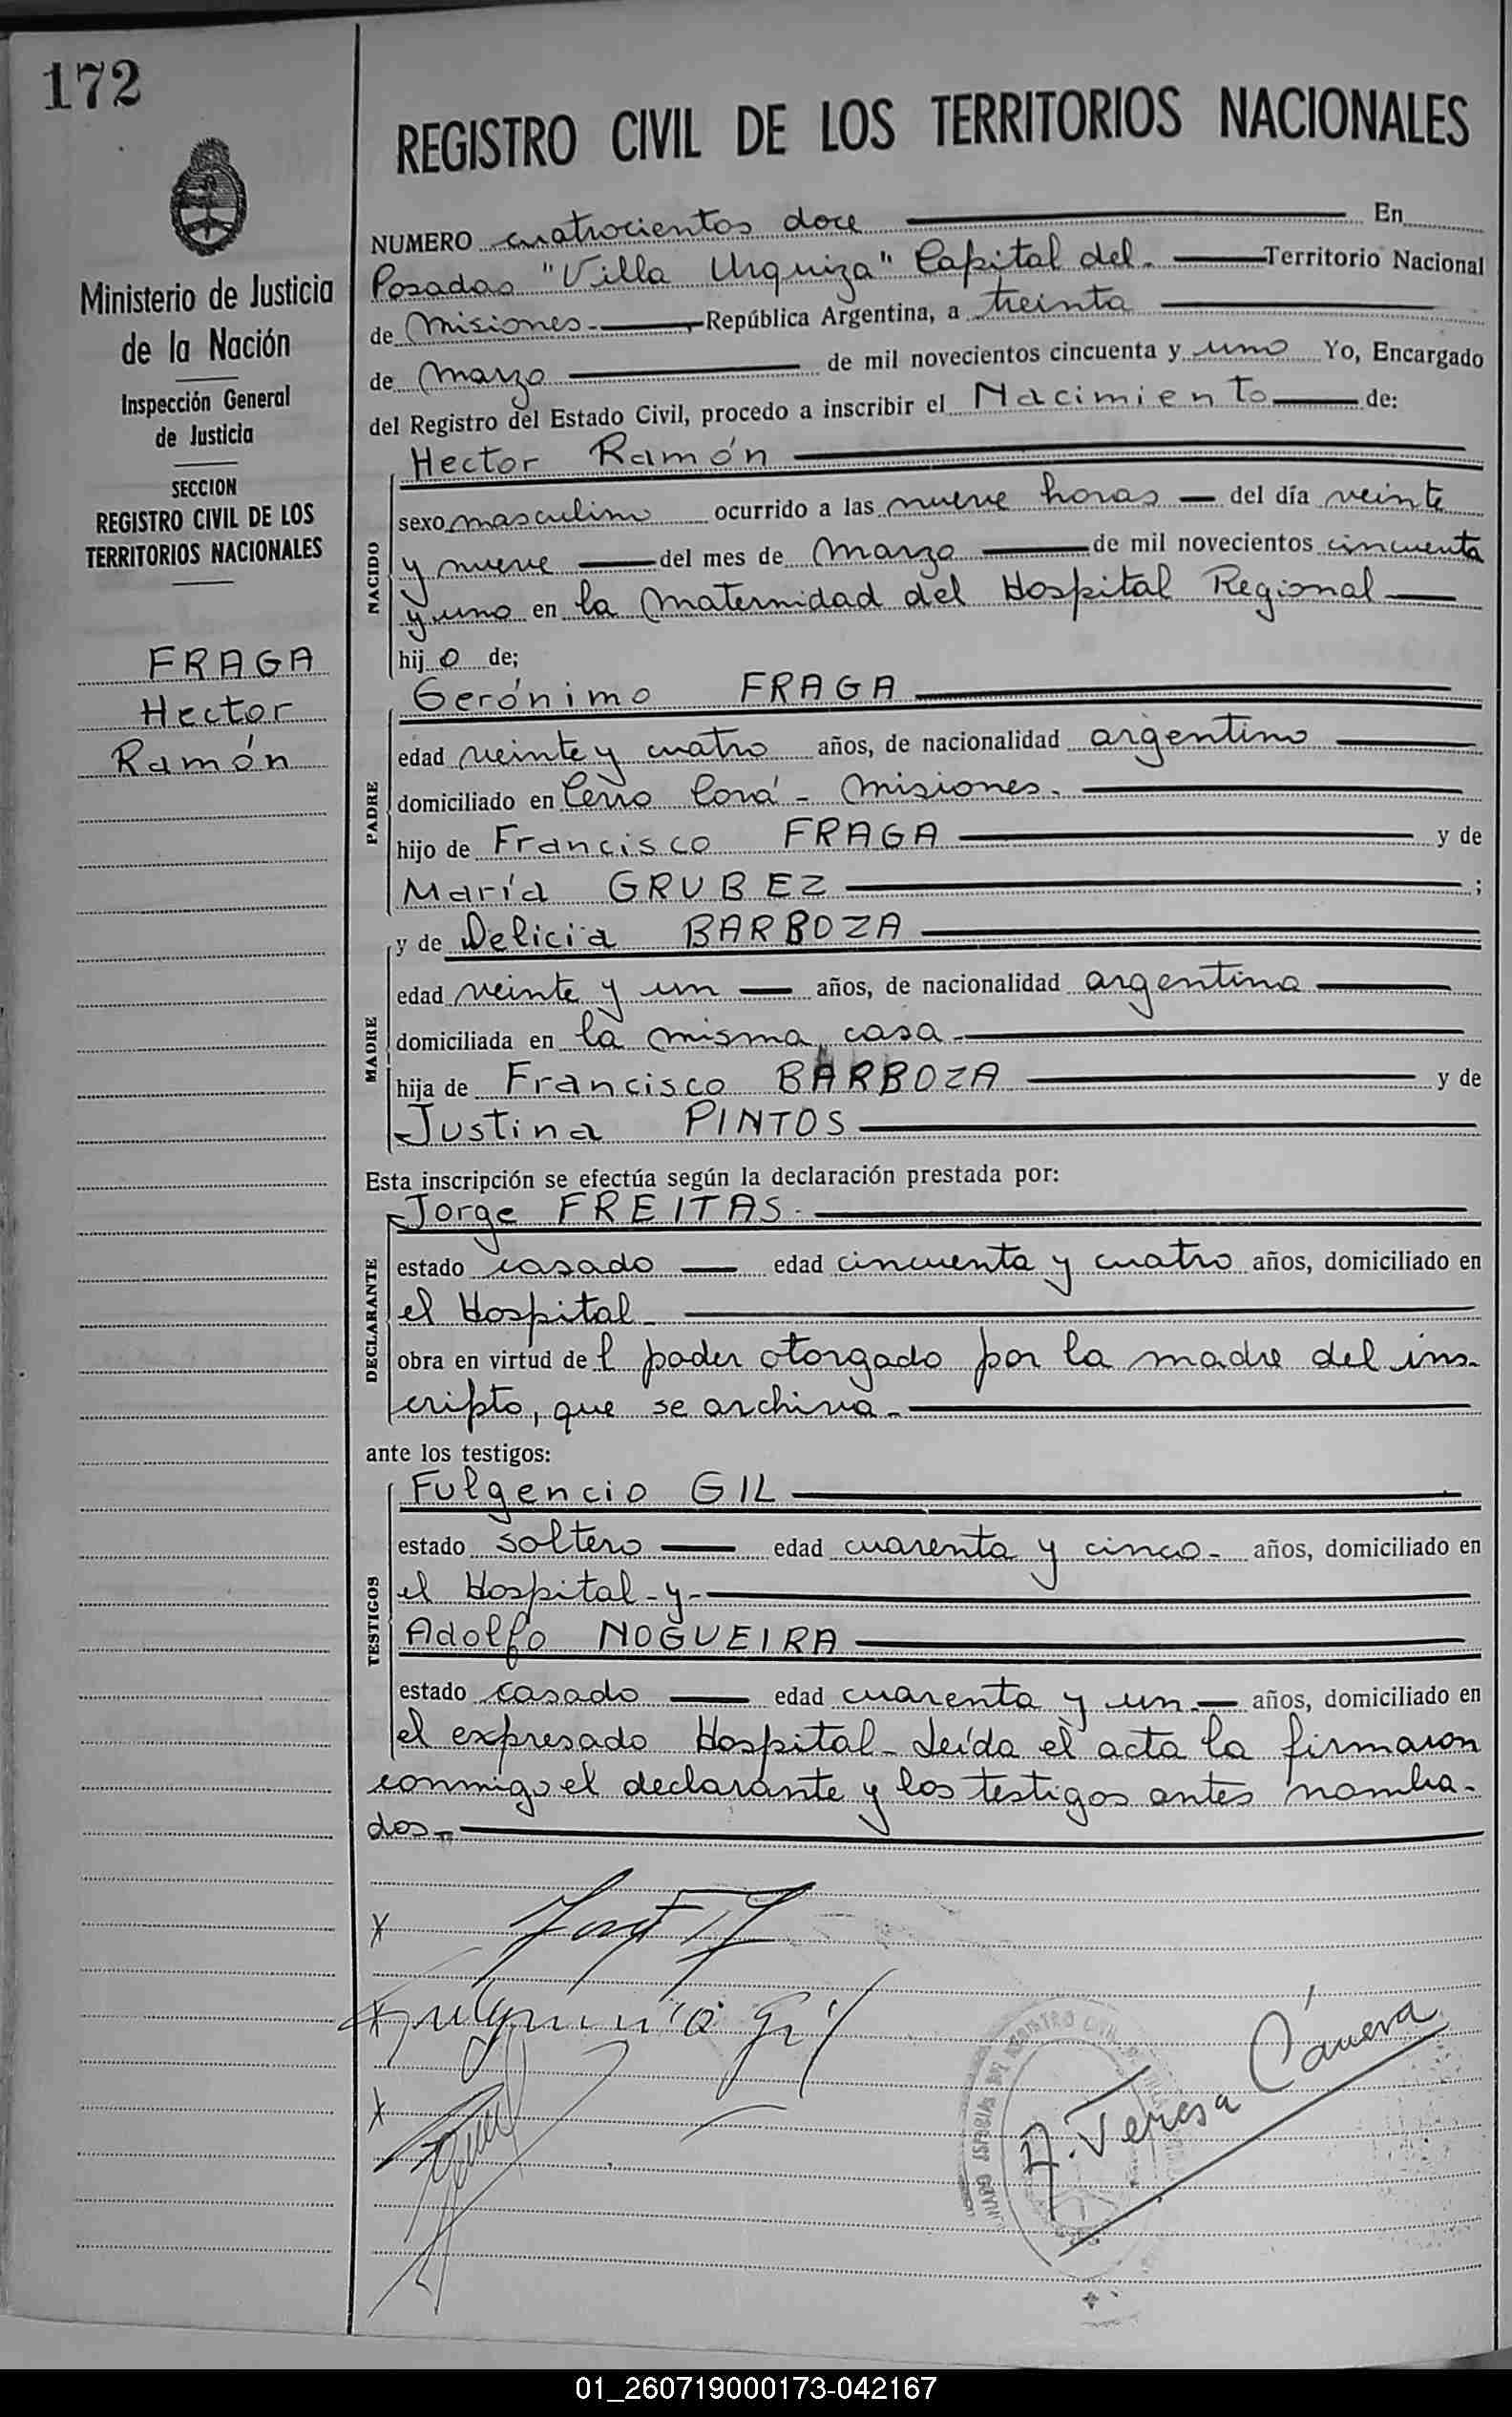 172
REGISTRO CIVIL DE LOS TERRITORIOS NACIONALES
Ministerio de Justicia
de la Nación
Inspección General
de Justicia
SECCION
REGISTRO CIVIL DE LOS
TERRITORIOS NACIONALES
FRAGA
Hector
Ramón
NUMERO cuatrocientos doce En
Posadas "Villa Urquiza" Capital del. Territorio Nacional
de Misiones- República Argentina, a treinta
de marzo de mil novecientos cincuenta y uno Yo, Encargado
del Registro del Estado Civil, procedo a inscribir el Nacimiento de:
NACIDO
Hector Ramón
sexo masculino ocurrido a las nueve horas del día veinte
y nueve del mes de marzo de mil novecientos cincuenta
y uno en la Maternidad del Hospital Regional
hijo de;
PADRE
Gerónimo FRAGA
edad veinte y cuatro años, de nacionalidad argentino
domiciliado en Cerro Corá - Misiones.
hijo de Francisco FRAGA y de
María GRUBEZ ;
MADRE
y de Delicia BARBOZA
edad veinte y un años, de nacionalidad argentina
domiciliada en la misma casa
hija de Francisco BARBOZA y de
Justina PINTOS
Esta inscripción se efectúa según la declaración prestada por:
DECLARANTE
Jorge FREITAS.
estado casado edad cincuenta y cuatro años, domiciliado en
el Hospital
obra en virtud del poder otorgado por la madre del ins-
cripto, que se archiva.-
ante los testigos:
TESTIGOS
Fulgencio GIL
estado soltero edad cuarenta y cinco- años, domiciliado en
el Hospital-y-
Adolfo NOGUEIRA
estado casado edad cuarenta y un- años, domiciliado en
el expresado Hospital- Leída el acta la firmaron
conmigo el declarante y los testigos antes nombra-
dos.-
Fulgencio Gil
A. Teresa Cáneva
01_260719000173-042167